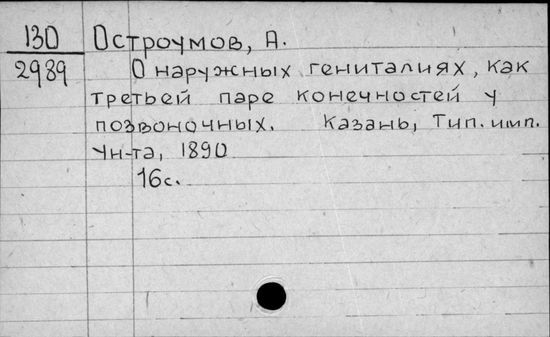 130
2989
Остроумов, А.
О наружных гениталиях, как
третьей паре конечностей у
позвоночных. Казань, Тип. имп.
Ун-та, 1890
16 с.